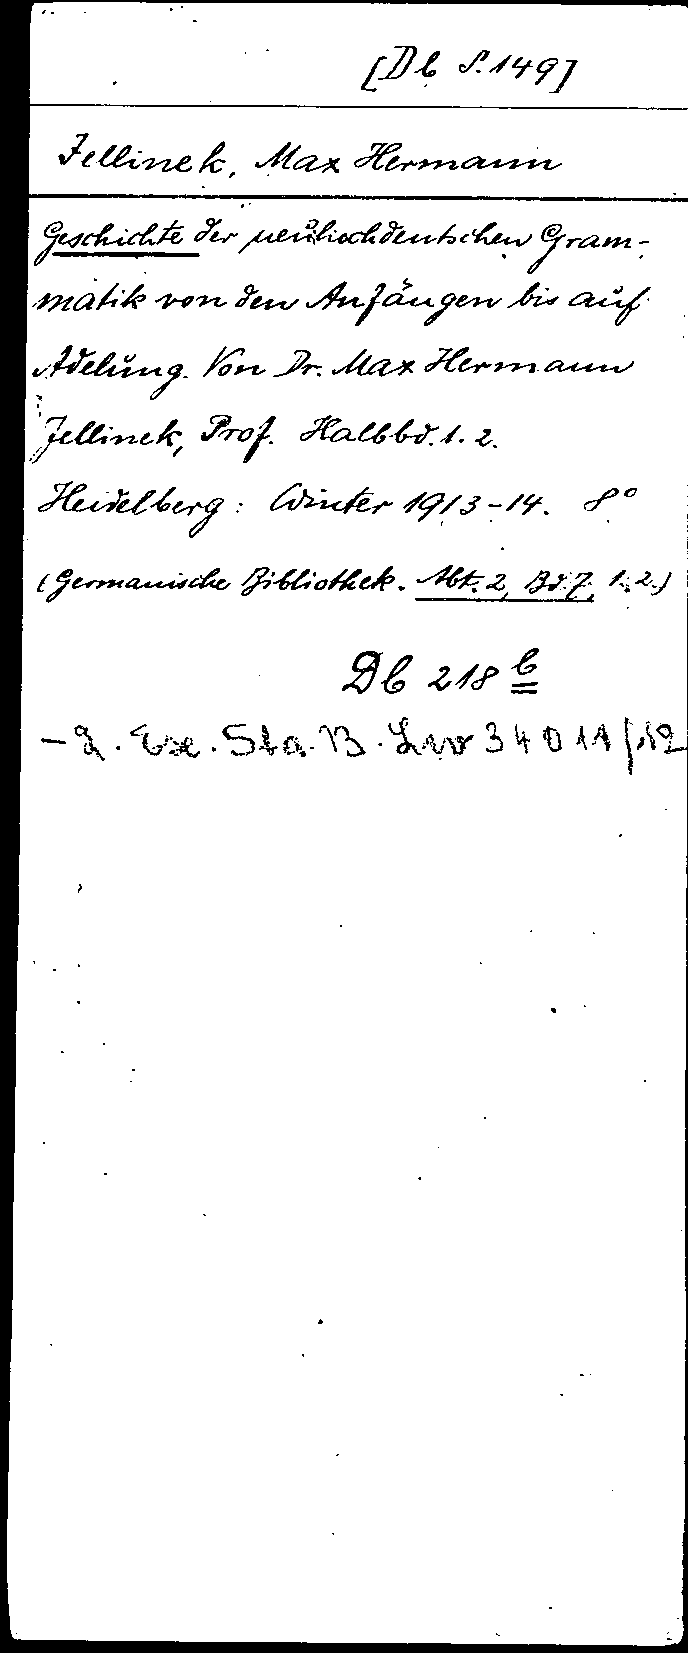 [Db S. 149]
Jellinek, Max Hermann
Geschichte der neuhochdeutschen Gram-
matik von den Anfängen bis auf
Adelung. Von Dr. Max Hermann
Jellinek, Prof. Halbbd. 1. 2.
Heidelberg: Winter 1913-14. 8°
(Germanische Bibliothek. Abt. 2, Bd. 7, 1. 2.)
Db 218 b
- 2. Ex. Sta. B. Lw 34011/12